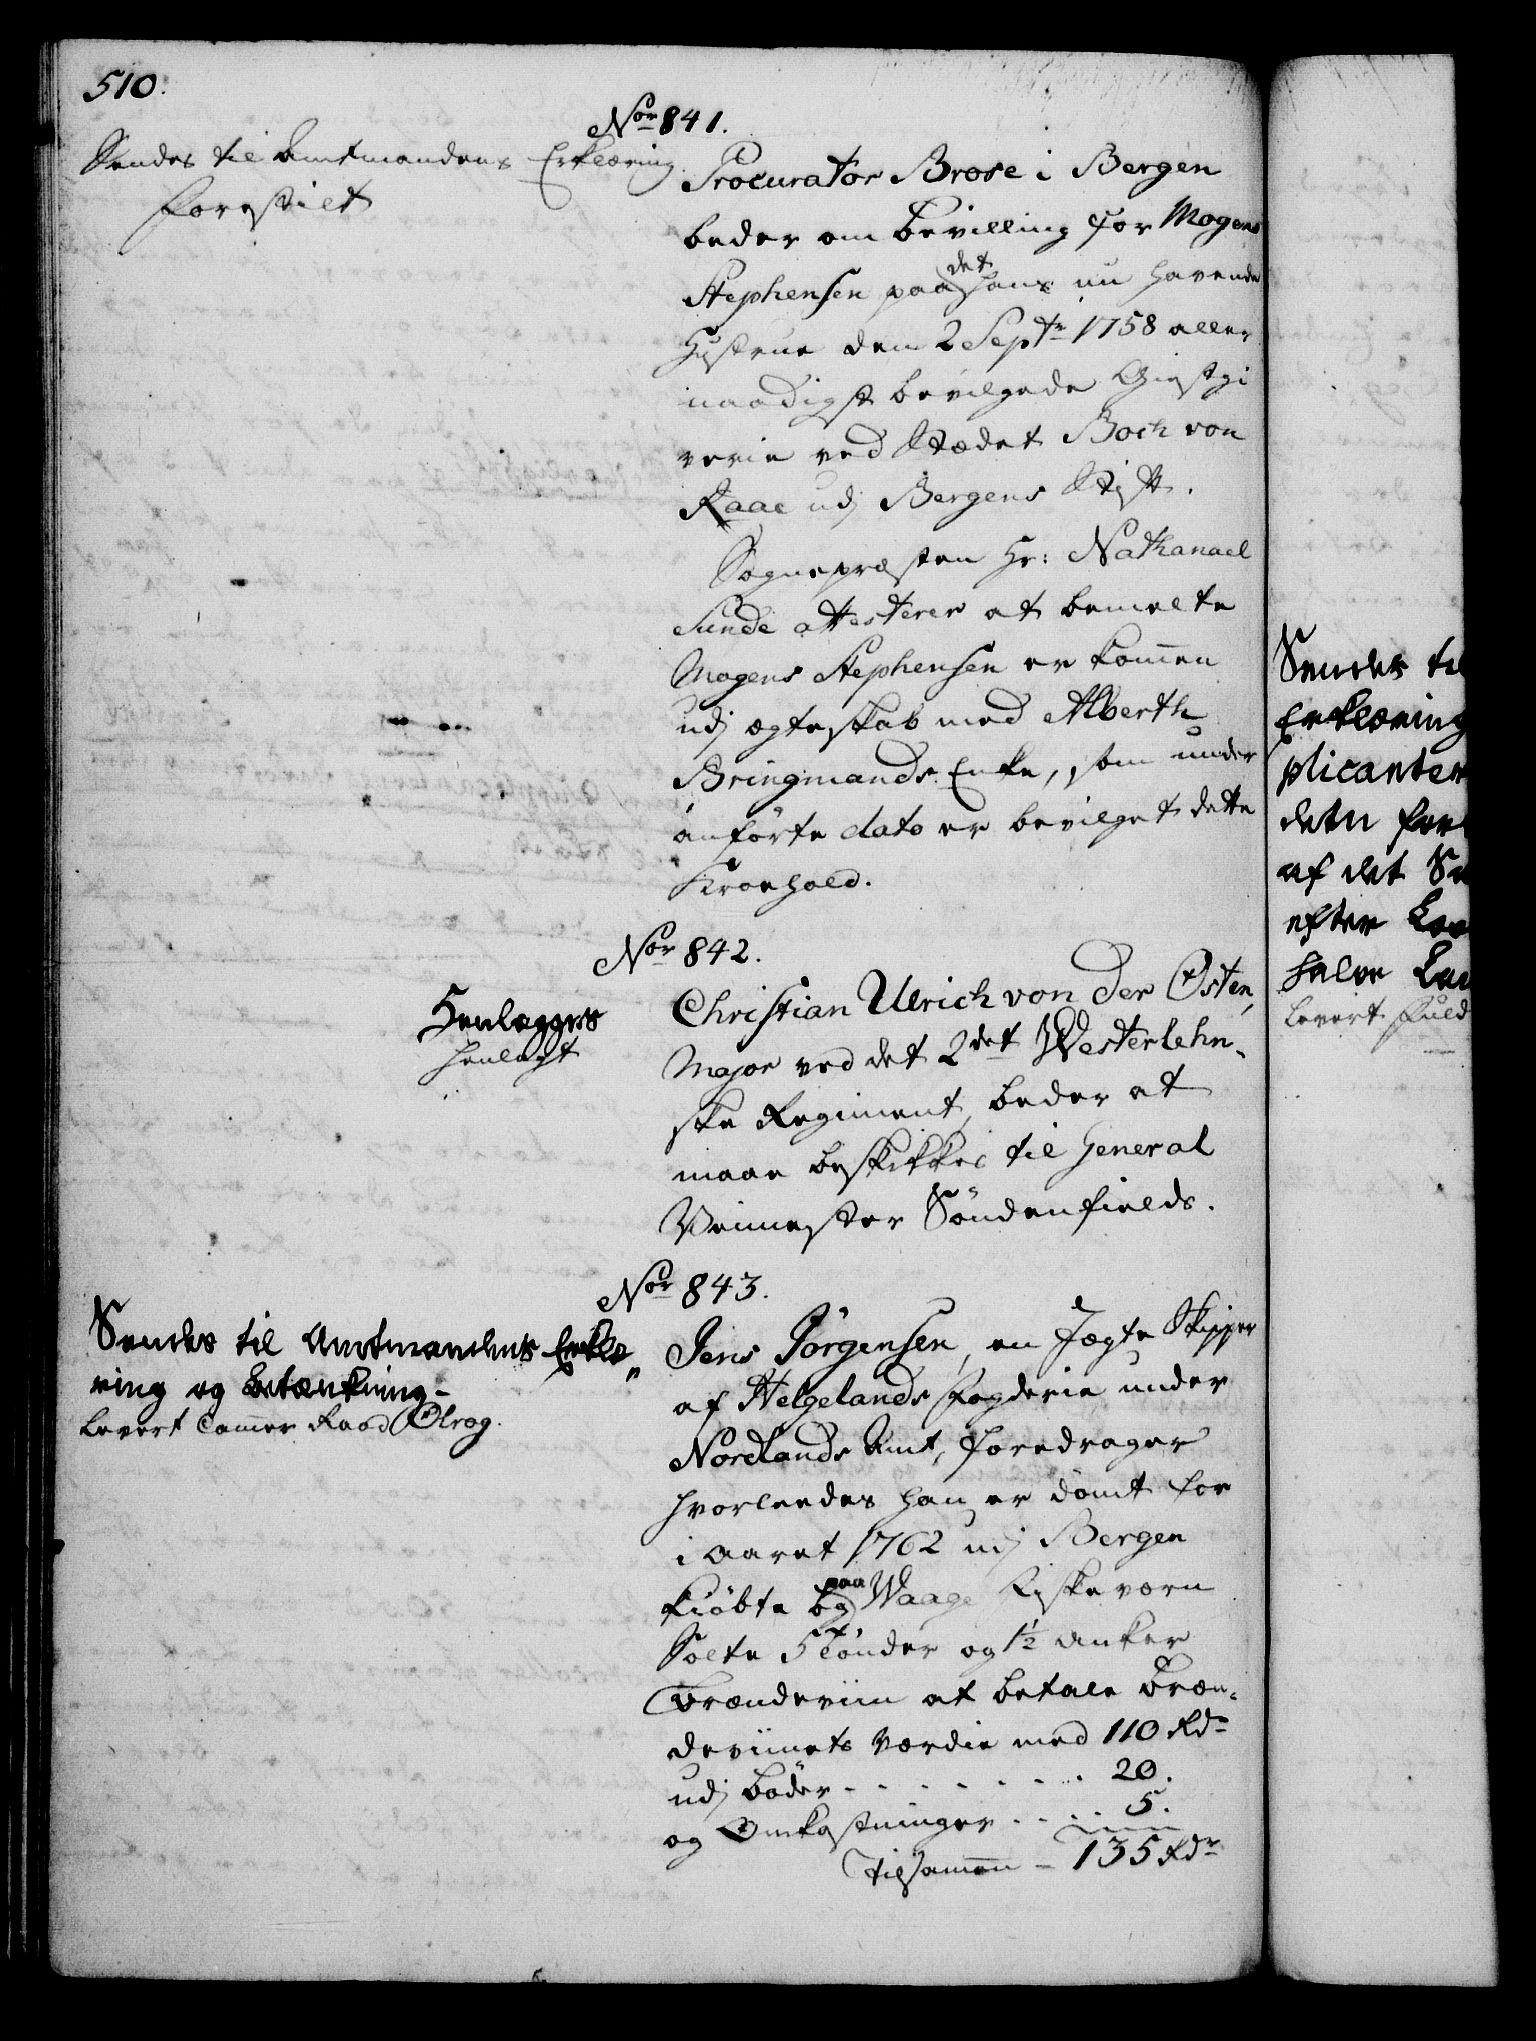 510.
Nor 841.
Sendes til Amtmandens Erklæring
forestilt
Procurator Brose i Bergen
beder om bevilling for Mogens
Stephensen paa det hans nu havende
Hustrue dem 2 Septr 1758 aller
naadigst bevilgede Giestgi
verie ved Stædet Boch von
Raae udj Bergens Stift.
Sognepræsten Hr: Nathanael
Sunde attesterer at bemelte
Mogens Stephensen er kommen
udj ægteskab med Alberth
Bringmands Enke, som under
anførte dato er bevilget dette
Kroehold.
Nor 842.
Henlægges
henlagt
Christian Ulrich von der Osten,
Major ved det 2det Westerlehn-
ske Regiment, beder at
maae beskikkes til General
Veimester Søndenfields.
Nor 843.
Sendes til Amtmandens Erklæ„
ring og betænkning-
levert Cammer Raad Olrog.
Jens Jörgensen, en Jægte Skipper
af Helgelands fogderie under
Nordlands Amt, foredrager
hvorleedes han er dömt for
i Aaret 1762 udj Bergen
kiöbte og paa Waage Fiskeværn
Solte 5 Tönder og 1½ Anker
Brændeviin at betale bræn-
deviinets værdie med 110 Rdr
udj böder - - - - - - - 20.
og Omkostninger - - - - 5.
Tilsammen - 135 Rdr
Sendes til
Erklæring
plicanten
detn for
af det
efter
halve
levert